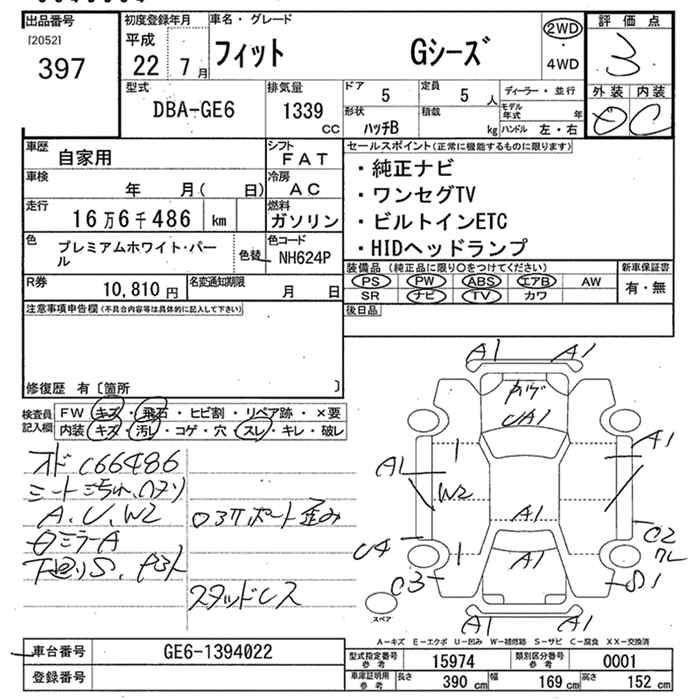 出品番号
[2052]
397
初度登録年月
平成
22 7月
車名・グレード
フィット Gシーズ
2WD
・
4WD
評価点
3
外装 内装
C
型式
DBA-GE6
排気量
1339 cc
ドア
5
定員
5 人
形状
ハッチB
積載
kg
ディーラー・並行
モデル年式 年
ハンドル 左・右
車歴
自家用
シフト
FAT
車検
年 月( 日)
冷房
AC
走行
16万6千486 km
燃料
ガソリン
色
プレミアムホワイト・パール
色替
色コード
NH624P
R券
10,810 円
名変通知期限
月 日
セールスポイント(正常に機能するものに限ります)
・純正ナビ
・ワンセグTV
・ビルトインETC
・HIDヘッドランプ
装備品 (純正品に限り○をつけてください)
PS PW ABS エアB AW
SR ナビ TV カワ
新車保証書
有・無
後日品
注意事項申告欄(不具合内容等は具体的に記入して下さい)
修復歴 有 [箇所 ]
検査員記入欄
FW キズ・飛石・ヒビ割・リペア跡・×要
内装 キズ・汚レ・コゲ・穴・スレ・キレ・破レ
A.U.W2
スタッドレス
A1 A1
UA1
A1
A1
W2
A1
A1
U4
C2
C3
S1
スペア
A1 A1
A-キズ E-エクボ U-凹み W-補修跡 S-サビ C-腐食 XX-交換済
車台番号
GE6-1394022
登録番号
型式指定番号参考
15974
類別区分番号参考
0001
車庫証明用参考
長さ 390 cm
幅 169 cm
高さ 152 cm